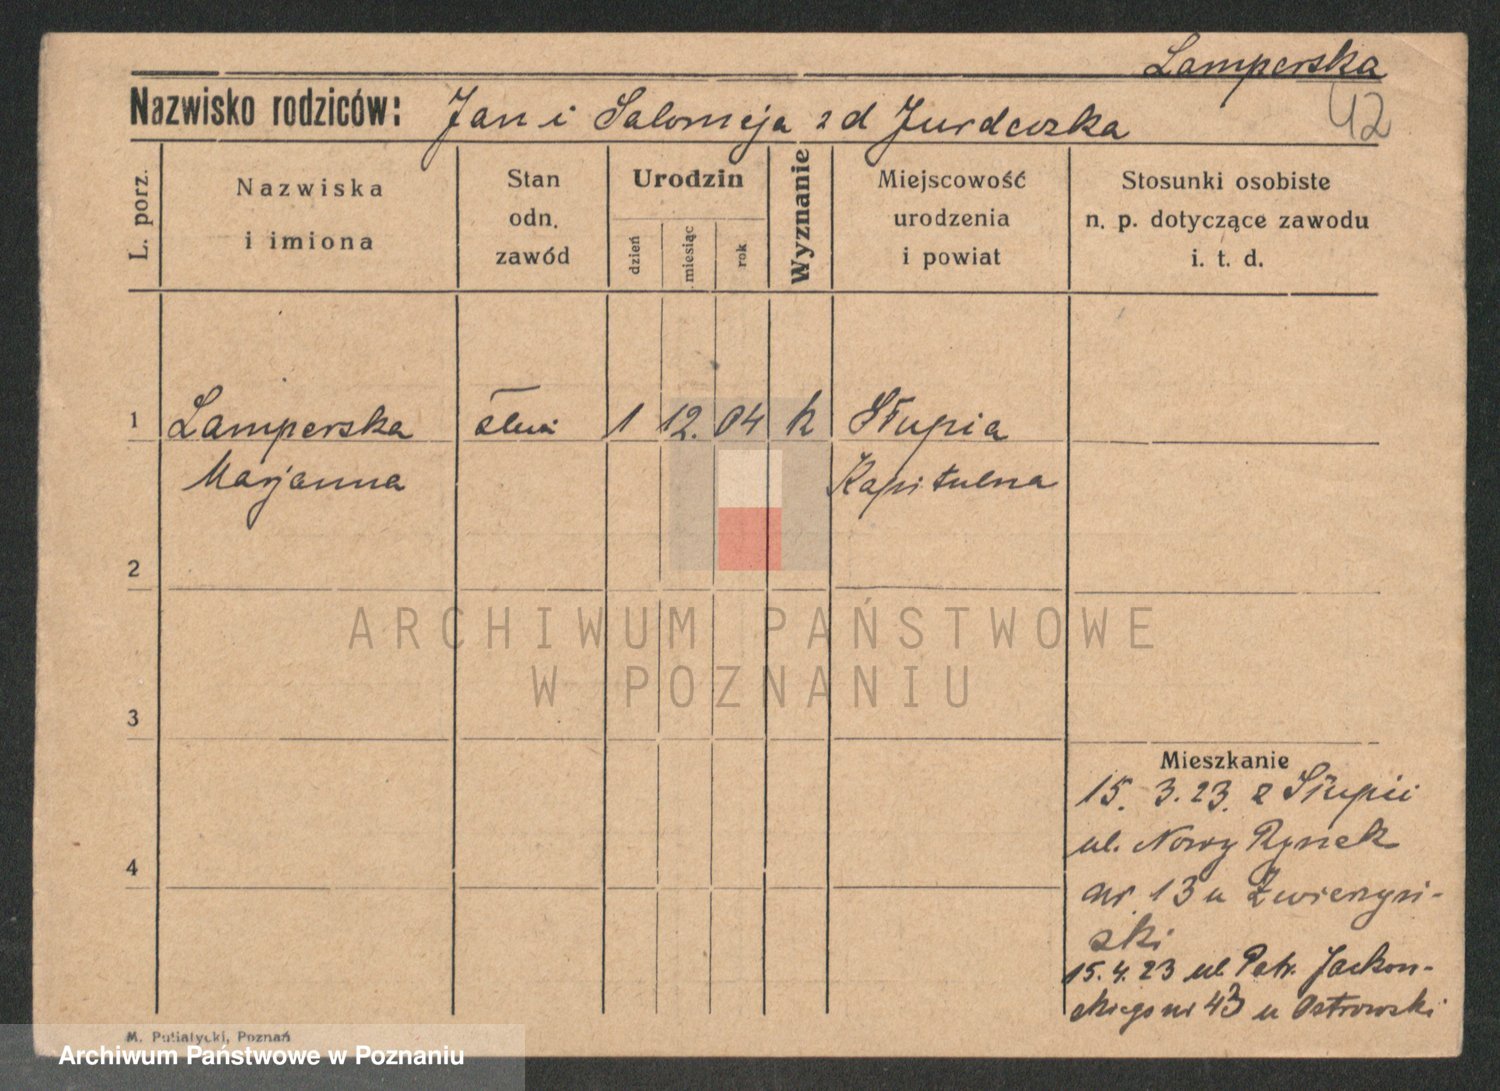 Lamperska
42
Nazwisko rodziców: Jan i Salomeja z d Jurdeczka
L. porz.
Nazwiska i imiona
Stan odn. zawód
Urodzin
dzień
miesiąc
rok
Wyznanie
Miejscowość urodzenia i powiat
Stosunki osobiste n. p. dotyczące zawodu i. t. d.
1 Lamperska 1 12. 04 k Słupia
Marjanna Kapitulna
2
ARCHIWUM PAŃSTWOWE
W POZNANIU
3
Mieszkanie
15. 3. 23. z Słupii
ul. Nowy Rynek
4
nr 13 u Zwierzyń-
ski
15. 4. 23 ul Patr. Jackow-
skiego nr 43 u Ostrowski
M. Putiatycki, Poznań
Archiwum Państwowe w Poznaniu